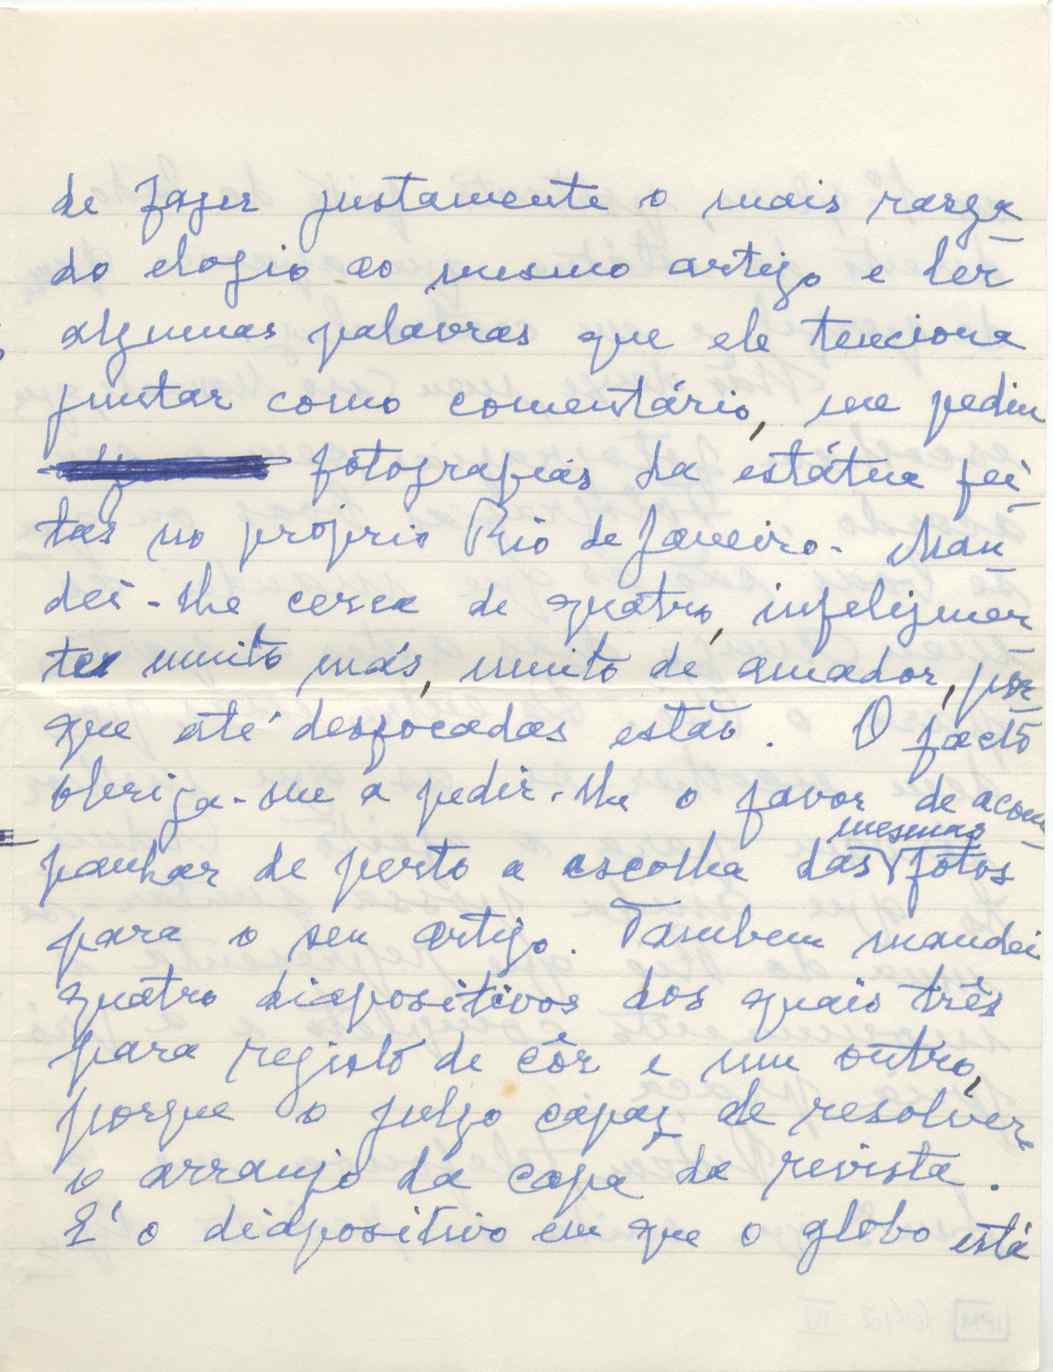 de fazer justamente o mais rasga-
do elogio ao mesmo artigo e ler
algumas palavras que ele tenciona
juntar como comentário, me pediu
fotografias da estátua fei-
tas no próprio Rio de Janeiro. Man-
dei-lhe cerca de quatro, infelizmen
te muito más, muito de amador, por-
que até desfocadas estão. O facto
obriga-me a pedir-lhe o favor de acom-
panhar de perto a escolha das mesmas fotos
para o seu artigo. Tambem mandei
quatro diapositivos dos quais três
para registo de côr e um outro,
porque o julgo capaz de resolver
o arranjo da capa da revista.
E' o diapositivo em que o globo está